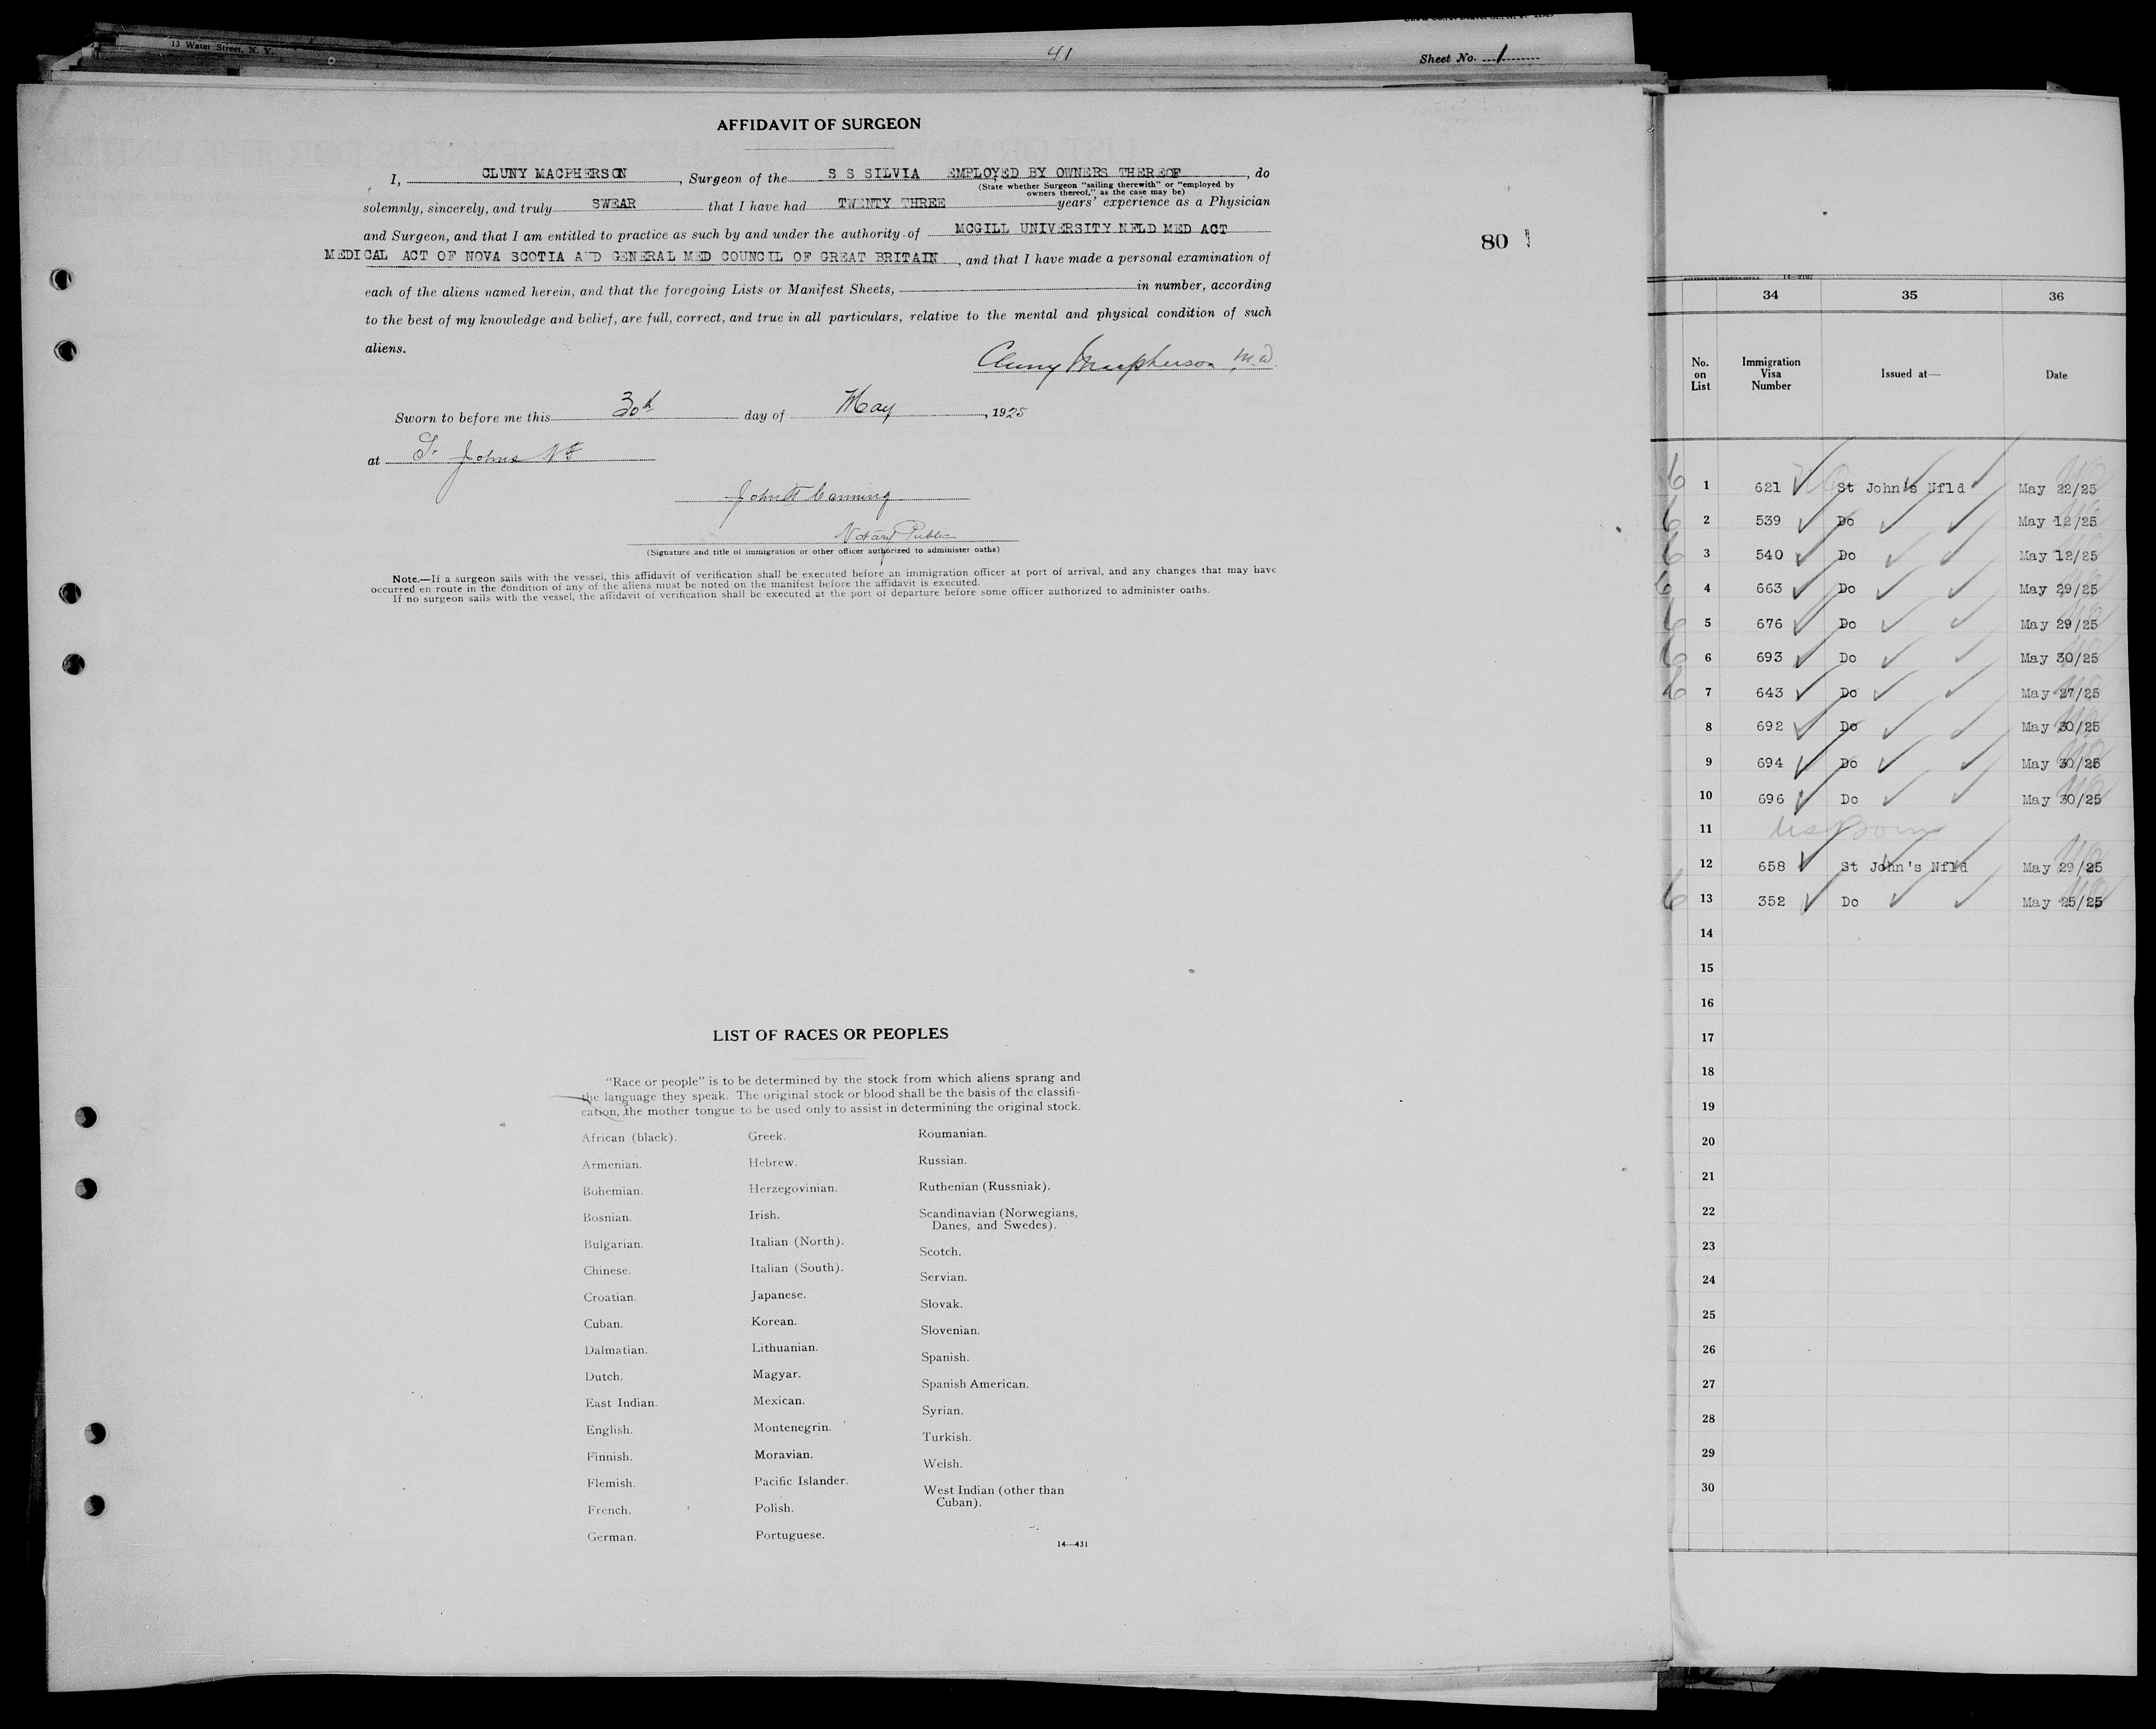 13 Water Street, N. Y.
41
Sheet No. 1
AFFIDAVIT OF SURGEON
I, CLUNY MACPHERSON, Surgeon of the S S SILVIA EMPLOYED BY OWNERS THEREOF, do
(State whether Surgeon "sailing therewith" or "employed by
owners thereof," as the case may be)
solemnly, sincerely, and truly SWEAR that I have had TWENTY THREE years' experience as a Physician
and Surgeon, and that I am entitled to practice as such by and under the authority of MCGILL UNIVERSITY NFLD MED ACT
MEDICAL ACT OF NOVA SCOTIA AND GENERAL MED COUNCIL OF GREAT BRITAIN, and that I have made a personal examination of
each of the aliens named herein, and that the foregoing Lists or Manifest Sheets, in number, according
to the best of my knowledge and belief, are full, correct, and true in all particulars, relative to the mental and physical condition of such
aliens.
Cluny Macpherson M.D.
Sworn to before me this 30th day of May, 1925
at St Johns NF
John Canning
Notary Public
(Signature and title of immigration or other officer authorized to administer oaths)
Note.—If a surgeon sails with the vessel, this affidavit of verification shall be executed before an immigration officer at port of arrival, and any changes that may have
occurred en route in the condition of any of the aliens must be noted on the manifest before the affidavit is executed.
If no surgeon sails with the vessel, the affidavit of verification shall be executed at the port of departure before some officer authorized to administer oaths.
80
LIST OF RACES OR PEOPLES
"Race or people" is to be determined by the stock from which aliens sprang and
the language they speak. The original stock or blood shall be the basis of the classifi-
cation, the mother tongue to be used only to assist in determining the original stock.
African (black).
Armenian.
Bohemian.
Bosnian.
Bulgarian.
Chinese.
Croatian.
Cuban.
Dalmatian.
Dutch.
East Indian.
English.
Finnish.
Flemish.
French.
German.
Greek.
Hebrew.
Herzegovinian.
Irish.
Italian (North).
Italian (South).
Japanese.
Korean.
Lithuanian.
Magyar.
Mexican.
Montenegrin.
Moravian.
Pacific Islander.
Polish.
Portuguese.
Roumanian.
Russian.
Ruthenian (Russniak).
Scandinavian (Norwegians,
Danes, and Swedes).
Scotch.
Servian.
Slovak.
Slovenian.
Spanish.
Spanish American.
Syrian.
Turkish.
Welsh.
West Indian (other than
Cuban).
14—431
34 35 36
No. on List Immigration Visa Number Issued at— Date
1 621 St John's Nfld May 22/25
2 539 Do May 12/25
3 540 Do May 12/25
4 663 Do May 29/25
5 676 Do May 29/25
6 693 Do May 30/25
7 643 Do May 27/25
8 692 Do May 30/25
9 694 Do May 30/25
10 696 Do May 30/25
11 US Born
12 658 St John's Nfld May 29/25
13 352 Do May 25/25
14
15
16
17
18
19
20
21
22
23
24
25
26
27
28
29
30